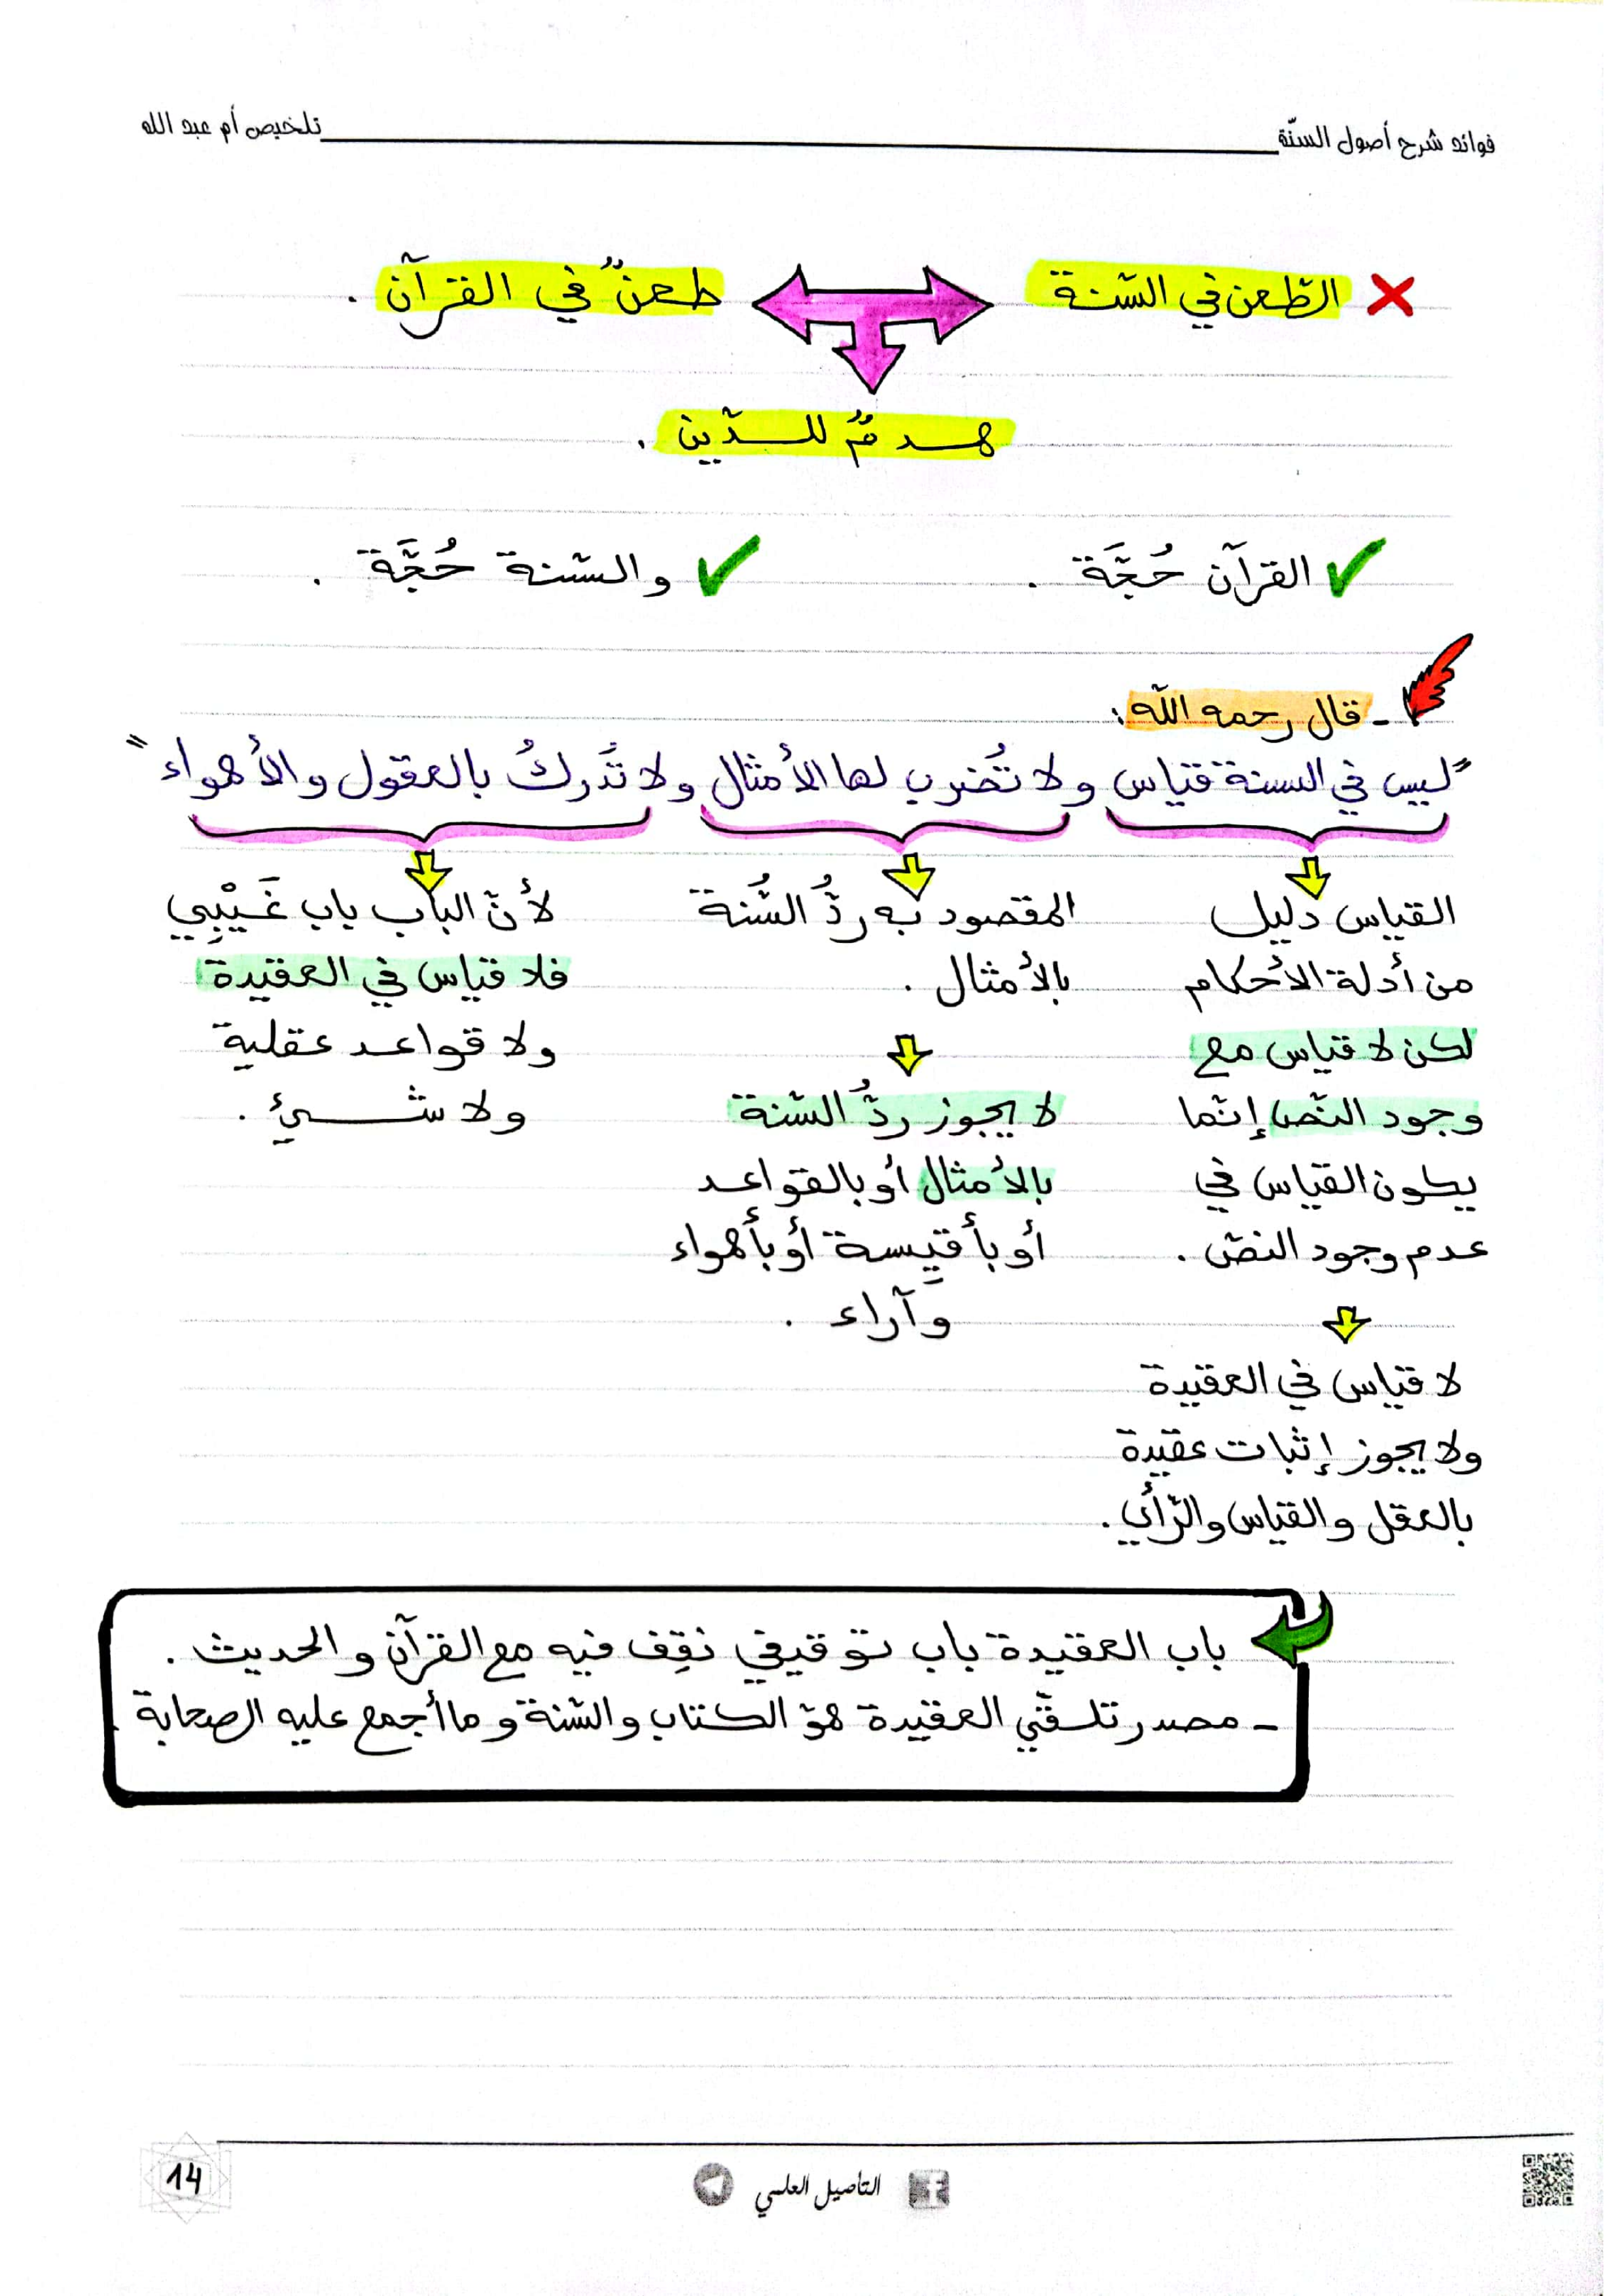 فوائد شرح أصول السنّة
تلخيص أم عبد الله
الطّعن في السّنة
طعنٌ في القرآن .
هدمٌ للدّين .
القرآن حُجَّة .
والسّنة حُجَّة .
- قال رحمه اللّه :
"ليس في السنة قياس ولا تُضرب لها الأمثال ولا تُدركُ بالعقول والأهواء"
القياس دليل
من أدلة الأحكام
لكن لا قياس مع
وجود النّص إنّما
يكون القياس في
عدم وجود النصّ .
لا قياس في العقيدة
ولا يجوز إثبات عقيدة
بالعقل والقياس والرّأي .
المقصود به ردُّ السُّنة
بالأمثال .
لا يجوز ردُّ السّنة
بالأمثال أو بالقواعد
أو بأقيسة أو بأهواء
وَآراء .
لأنّ الباب باب غَيْبِي
فلا قياس في العقيدة
ولا قواعد عقلية
ولا شيئ .
باب العقيدة باب توقيفي نقِف فيه مع القرآن والحديث .
- مصدر تلقّي العقيدة هو الكتاب والسّنة وما أجمع عليه الصحابة .
التأصيل العلمي
14